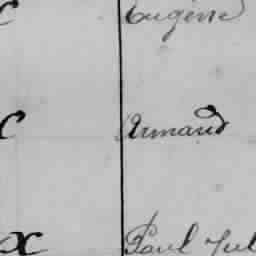 Eugène
Armand
x Paul Jul